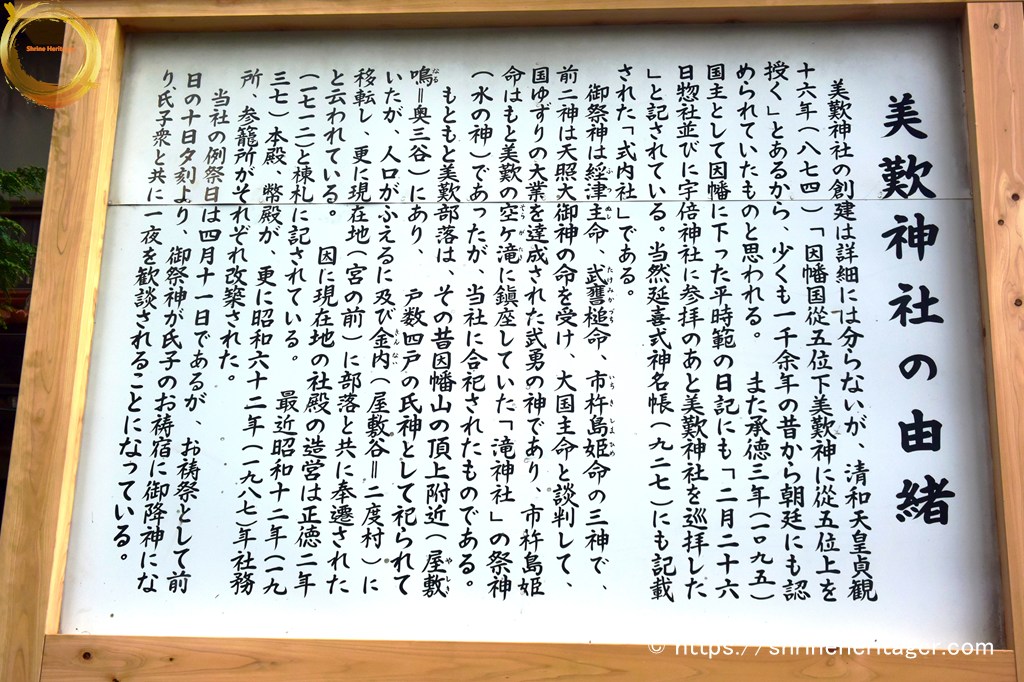 美歎神社の由緒
美歎神社の創建は詳細には分らないが、清和天皇貞観
十六年（八七四）「因幡国従五位下美歎神に従五位上を
授く」とあるから、少くも一千余年の昔から朝廷にも認
められていたものと思われる。　また承徳三年（一〇九五）
国主として因幡に下った平時範の日記にも「二月二十六
日惣社並びに宇倍神社に参拝のあと美歎神社を巡拝した
」と記されている。当然延喜式神名帳（九二七）にも記載
された「式内社」である。
御祭神は経津主命、武甕槌命、市杵島姫命の三神で、
前二神は天照大御神の命を受け、大国主命と談判して、
国ゆずりの大業を達成された武勇の神であり、市杵島姫
命はもと美歎の空ヶ滝に鎮座していた「滝神社」の祭神
（水の神）であったが、当社に合祀されたものである。
もともと美歎部落は、その昔因幡山の頂上附近（屋敷
鳴＝奥三谷）にあり、　戸数四戸の氏神として祀られて
いたが、人口がふえるに及び金内（屋敷谷＝二度村）に
移転し、更に現在地（宮の前）に部落と共に奉遷された
と云われている。　因に現在地の社殿の造営は正徳二年
（一七一二）と棟札に記されている。　最近昭和十二年（一九
三七）本殿、幣殿が、更に昭和六十二年（一九八七）年社務
所、参籠所がそれぞれ改築された。
当社の例祭日は四月十一日であるが、お祷祭として前
日の十日夕刻より、御祭神が氏子のお祷宿に御降神にな
り、氏子衆と共に一夜を歓談されることになっている。
Shrine Heritager
© https://shrineheritager.com